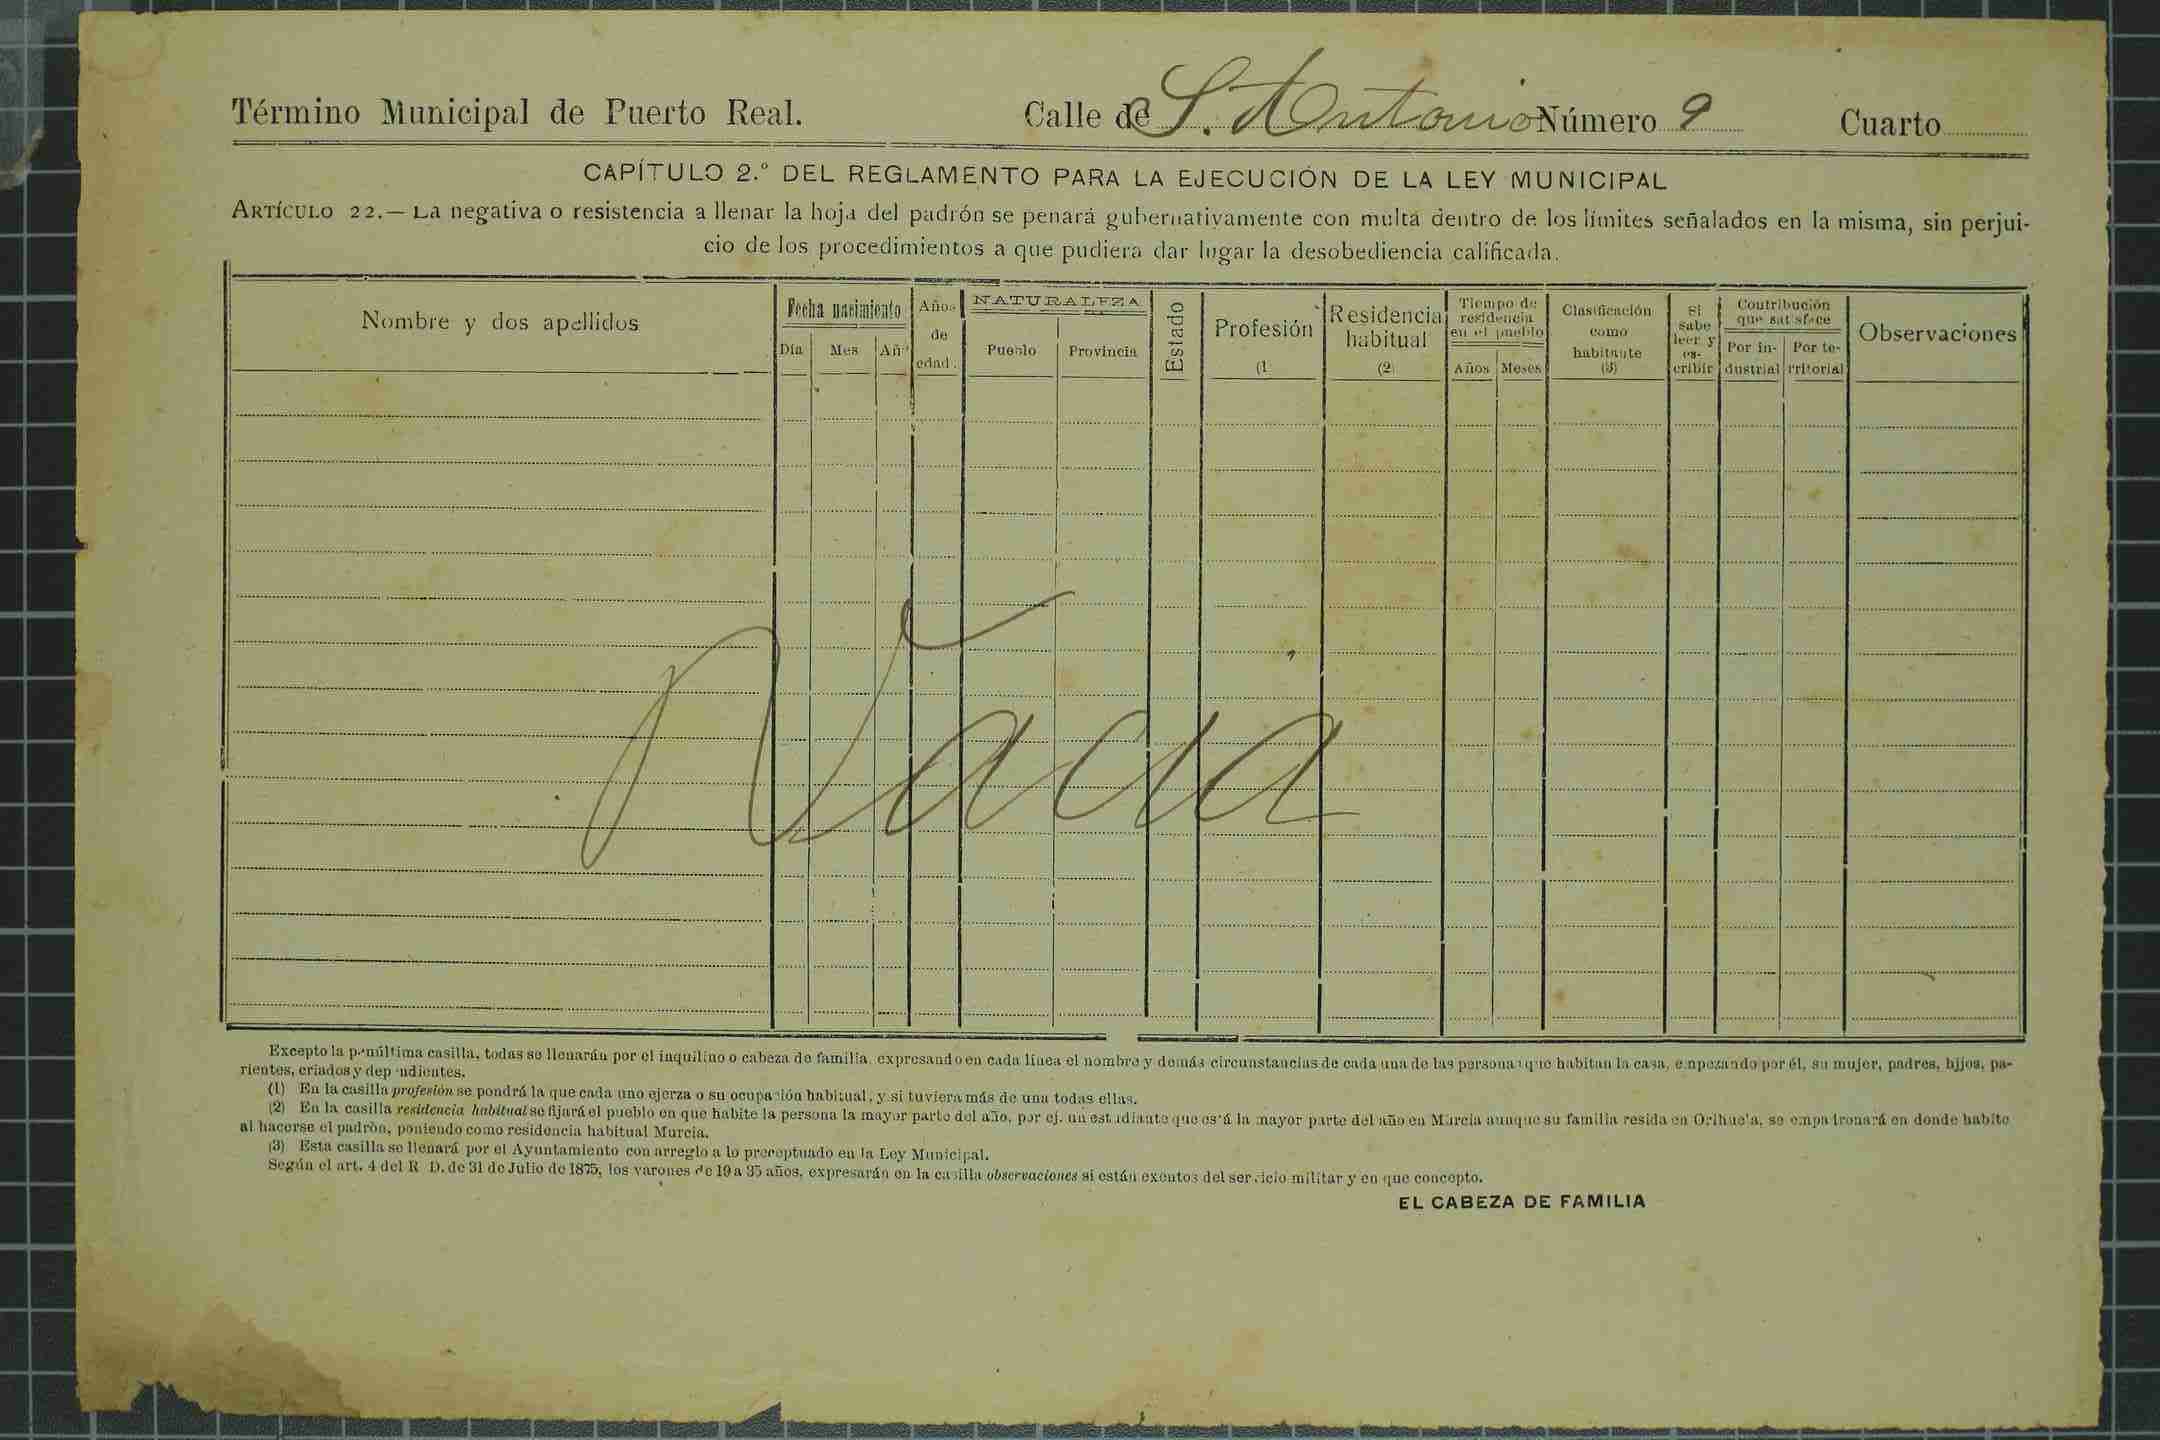 Término Municipal de Puerto Real. Calle de S. Antonio Número 9 Cuarto
CAPÍTULO 2.º DEL REGLAMENTO PARA LA EJECUCIÓN DE LA LEY MUNICIPAL
ARTÍCULO 22.— La negativa o resistencia a llenar la hoja del padrón se penará gubernativamente con multa dentro de los límites señalados en la misma, sin perjui-
cio de los procedimientos a que pudiera dar lugar la desobediencia calificada.
Nombre y dos apellidos
Fecha nacimiento
Día Mes Añ
Años
de
edad.
NATURALEZA
Pueblo Provincia
Estado
Profesión
(1
Residencia
habitual
(2)
Tiempo de
residencia
en el pueblo
Años Meses
Clasificación
como
habitante
(3)
Si
sabe
leer y
es-
cribir
Contribución
que satisface
Por in-
dustrial
Por te-
rritorial
Observaciones
Vacia
Excepto la penúltima casilla, todas se llenarán por el inquilino o cabeza de familia, expresando en cada línea el nombre y demás circunstancias de cada una de las personas que habitan la casa, empezando por él, su mujer, padres, hijos, pa-
rientes, criados y dependientes.
(1) En la casilla profesión se pondrá la que cada uno ejerza o su ocupación habitual, y si tuviera más de una todas ellas.
(2) En la casilla residencia habitual se fijará el pueblo en que habite la persona la mayor parte del año, por ej. un estudiante que está la mayor parte del año en Murcia aunque su familia resida en Orihuela, se empatronará en donde habite
al hacerse el padrón, poniendo como residencia habitual Murcia.
(3) Esta casilla se llenará por el Ayuntamiento con arreglo a lo preceptuado en la Ley Municipal.
Según el art. 4 del R D. de 31 de Julio de 1875, los varones de 19 a 35 años, expresarán en la casilla observaciones si están exentos del servicio militar y en que concepto.
EL CABEZA DE FAMILIA